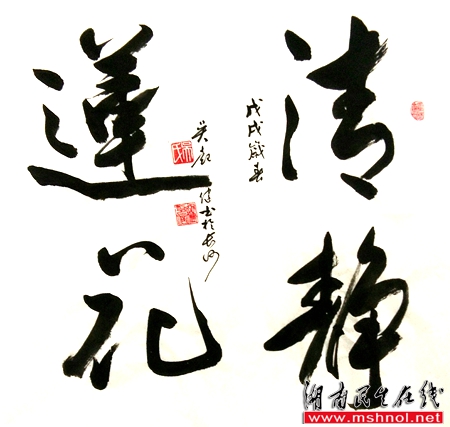 清静
蓮花
戊戌歲春
书於长沙
湖南民生在线
www.mshnol.net